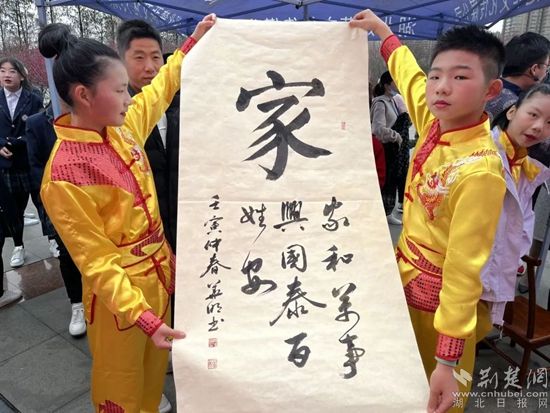 家
家和萬事
興國泰百
姓安
壬寅仲春书
荆楚網
www.cnhubei.com
湖北日报网